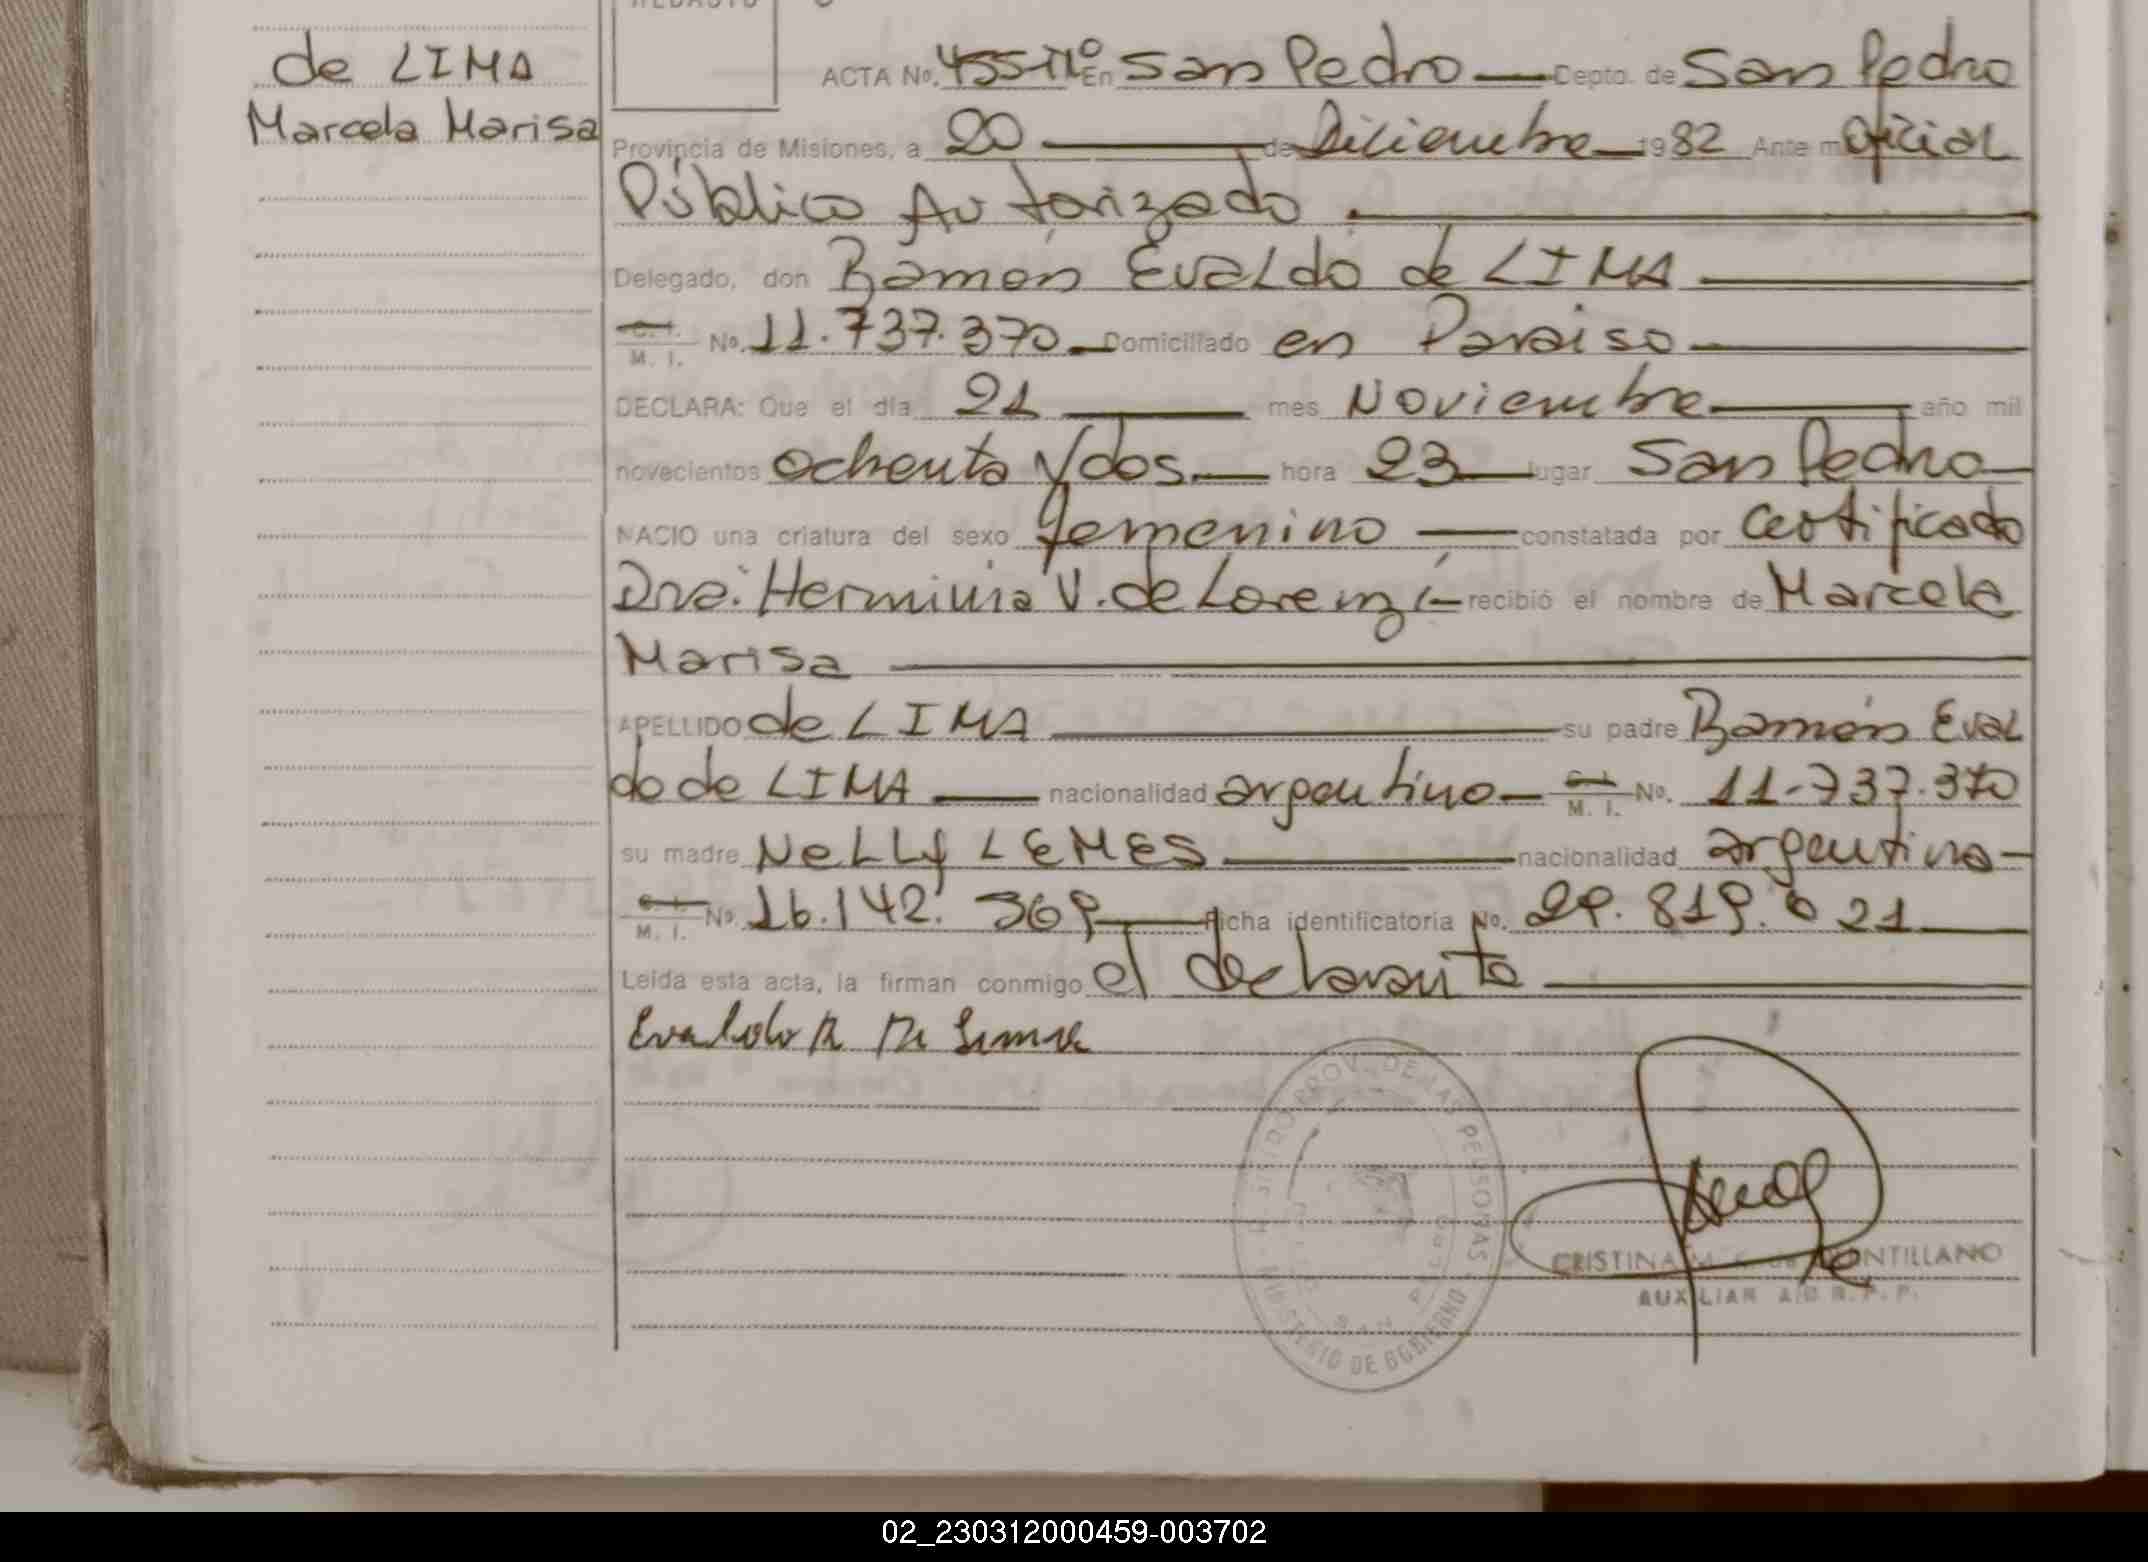 de LIMA
Marcela Marisa
ACTA No. 455-Tº En San Pedro Depto. de San Pedro
Provincia de Misiones, a 20 de Diciembre 1982 Ante mi Oficial
Público Autorizado.
Delegado, don Ramón Evaldo de LIMA
C. I. M. I. No. 11.737.370 Domiciliado en Paraiso
DECLARA: Que el día 21 mes Noviembre año mil
novecientos ochenta y dos. hora 23 lugar San Pedro
NACIO una criatura del sexo femenino constatada por certificado
Dra: Herminia V. de Lorenzi recibió el nombre de Marcela
Marisa
APELLIDO de LIMA su padre Ramón Eval
do de LIMA nacionalidad argentino C. I. M. I. No. 11.737.370
su madre NeLLy LEMES nacionalidad argentina
C. I. M. I. No. 16.142.369 Ficha identificatoria No. 29.819.021
Leida esta acta, la firman conmigo el declarante
PROV. DE LAS PERSONAS
MINISTERIO DE GOBIERNO
SAN PEDRO
CRISTINA M. de MONTILLANO
AUXILIAR
02_230312000459-003702